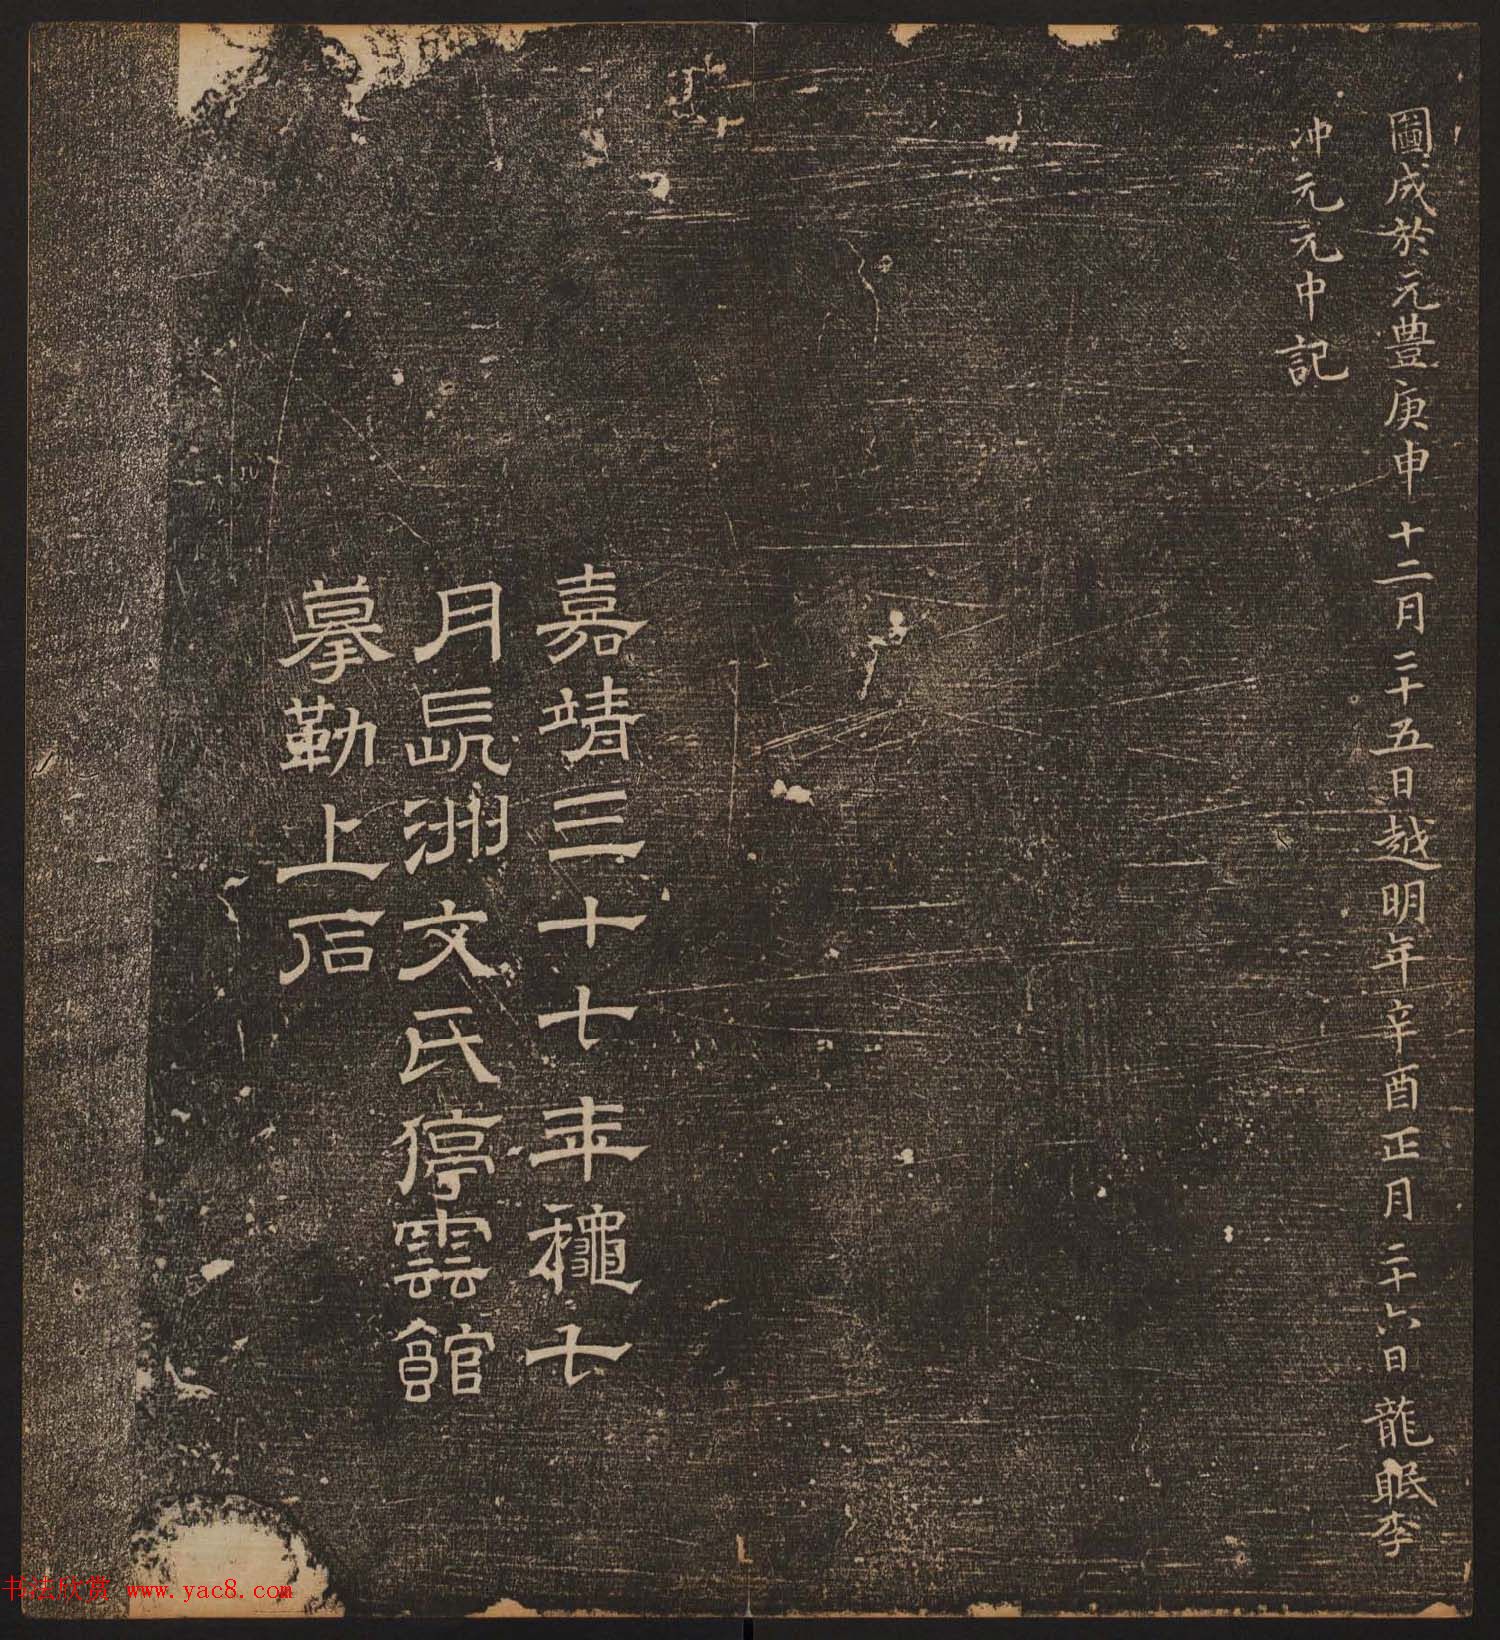 圖成於元豐庚申十二月二十五日越明年辛酉正月二十六日龍眠李
冲元元中記
嘉靖三十七年龝七
月長洲文氏停雲館
摹勒上石
书法欣赏 www.yac8.com